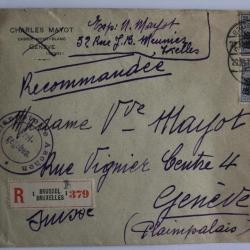 CHARLES MAYOT
GENÈVE
Exp: V. Mayot
32 Rue J.B. Meunier
Ixelles
Recommandée
Madame Vve Mayot
Rue Vignier Centre 4
Genève
(Plainpalais)
Suisse
R 1 BRUSSEL 1
BRUXELLES 1 379